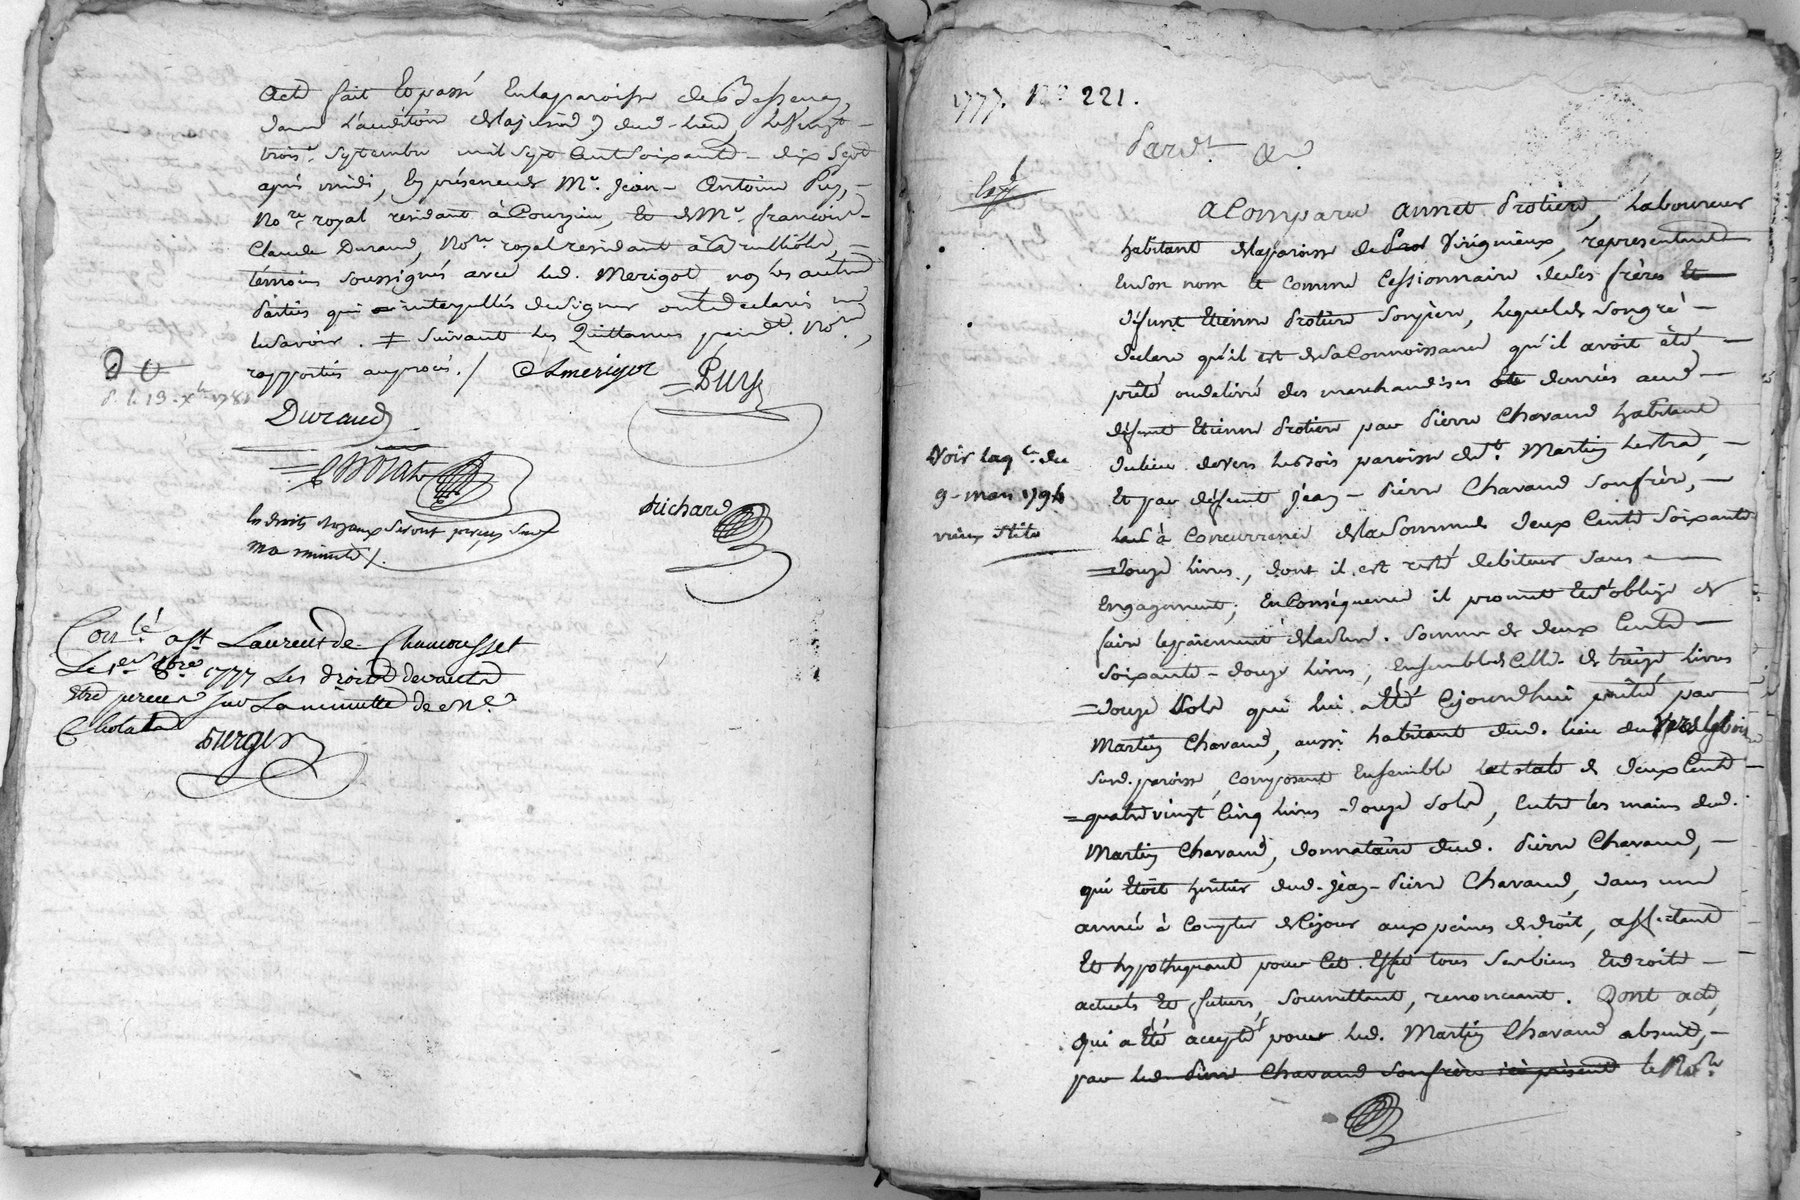 Acte fait et passé en la paroisse de Bessenay,
dans l'auditoire de la jurisd.on dud. lieu, le vingt-
trois septembre mil sept cent soixante-dix sept
après midi, en présence de Mr. Jean-Antoine Puy,
No.re royal résidant à Courzieu, et de Mr. françois-
Claude Durand, No.re royal résidant à
témoins soussignés avec led. Merigot, non les autres
parties qui interpellés de signer ont déclaré ne
le savoir. ≠ suivant les quittances No.re
rapportés au procès./ C Merigot Puy
Durand
Chorat
Richard
les droits royaux seront perçus sur
ma minute/.
20
P. le 13. X.bre 1781
Con.lé a St Laurent de Chamousset
Le 1er 8bre 1777 Les droits devants
etre percue sur La minutte de Me.
Chorat
Durger
1777. No. 221.
Pard.t &
Exp.
A Comparu Annet Protière, Laboureur
habitant de la paroisse de Virigneux, représentant
en son nom et comme Cessionnaire de ses frères
défunt Etienne Protière son père, lequel de son gré
déclare qu'il est de sa Connoissance qu'il avoit été
prêté ou délivré des marchandises ou denrées aud.
défunt Etienne Protière par Pierre Chavand habitant
du lieu de vers le bois paroisse de St. Martin Lestra,
et par défunt Jean-Pierre Chavand son frère,
à concurrence de la somme de deux Cents soixante
=douze livres, dont il est resté débiteur sans
engagement; en Conséquence il promet et s'oblige de
faire le paiement de lad. somme de deux Cents
soixante-douze livres, ensemble Celle de treize livres
=douze sols qui lui a été Cejourd'hui prêté par
Martin Chavand, aussi habitant dud. lieu de vers le bois
sud. paroisse, composant ensemble celle de deux Cents
=quatre vingt Cinq livres douze sols, entre les mains dud.
Martin Chavand, donnataire dud. Pierre Chavand,
qui étoit héritier dud. Jean-Pierre Chavand, dans une
année à Compter de Cejour aux peines de droit, affectant
et hypothéquant pour Cet Effet tous ses biens et droits
actuels et futurs, soumettant, renonceant. Dont acte,
qui a été accepté pour led. Martin Chavand absent,
par led. Pierre Chavand son frère ici présent le No.re
Voir la q.ce du
9 mars 1794
vieux stile